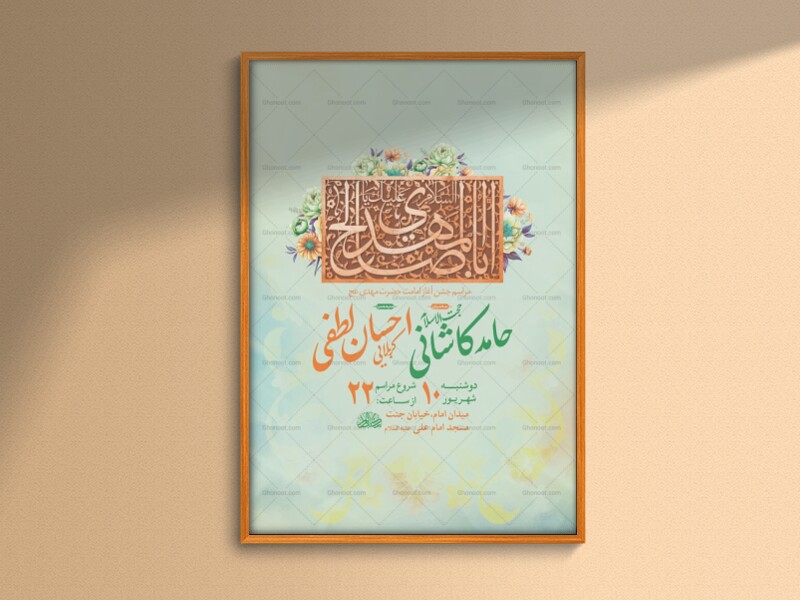 السلام علیک یا
اباصالح المهدی
مراسم جشن آغاز امامت حضرت مهدی عج
حجت‌الاسلام
حامد کاشانی
احسان لطفی
کهلایی
دوشنبه
۱۰ شهریور
شروع مراسم
از ساعت: ۲۲
میدان امام، خیابان جنت
مسجد امام علی علیه السلام
Ghonoot.com